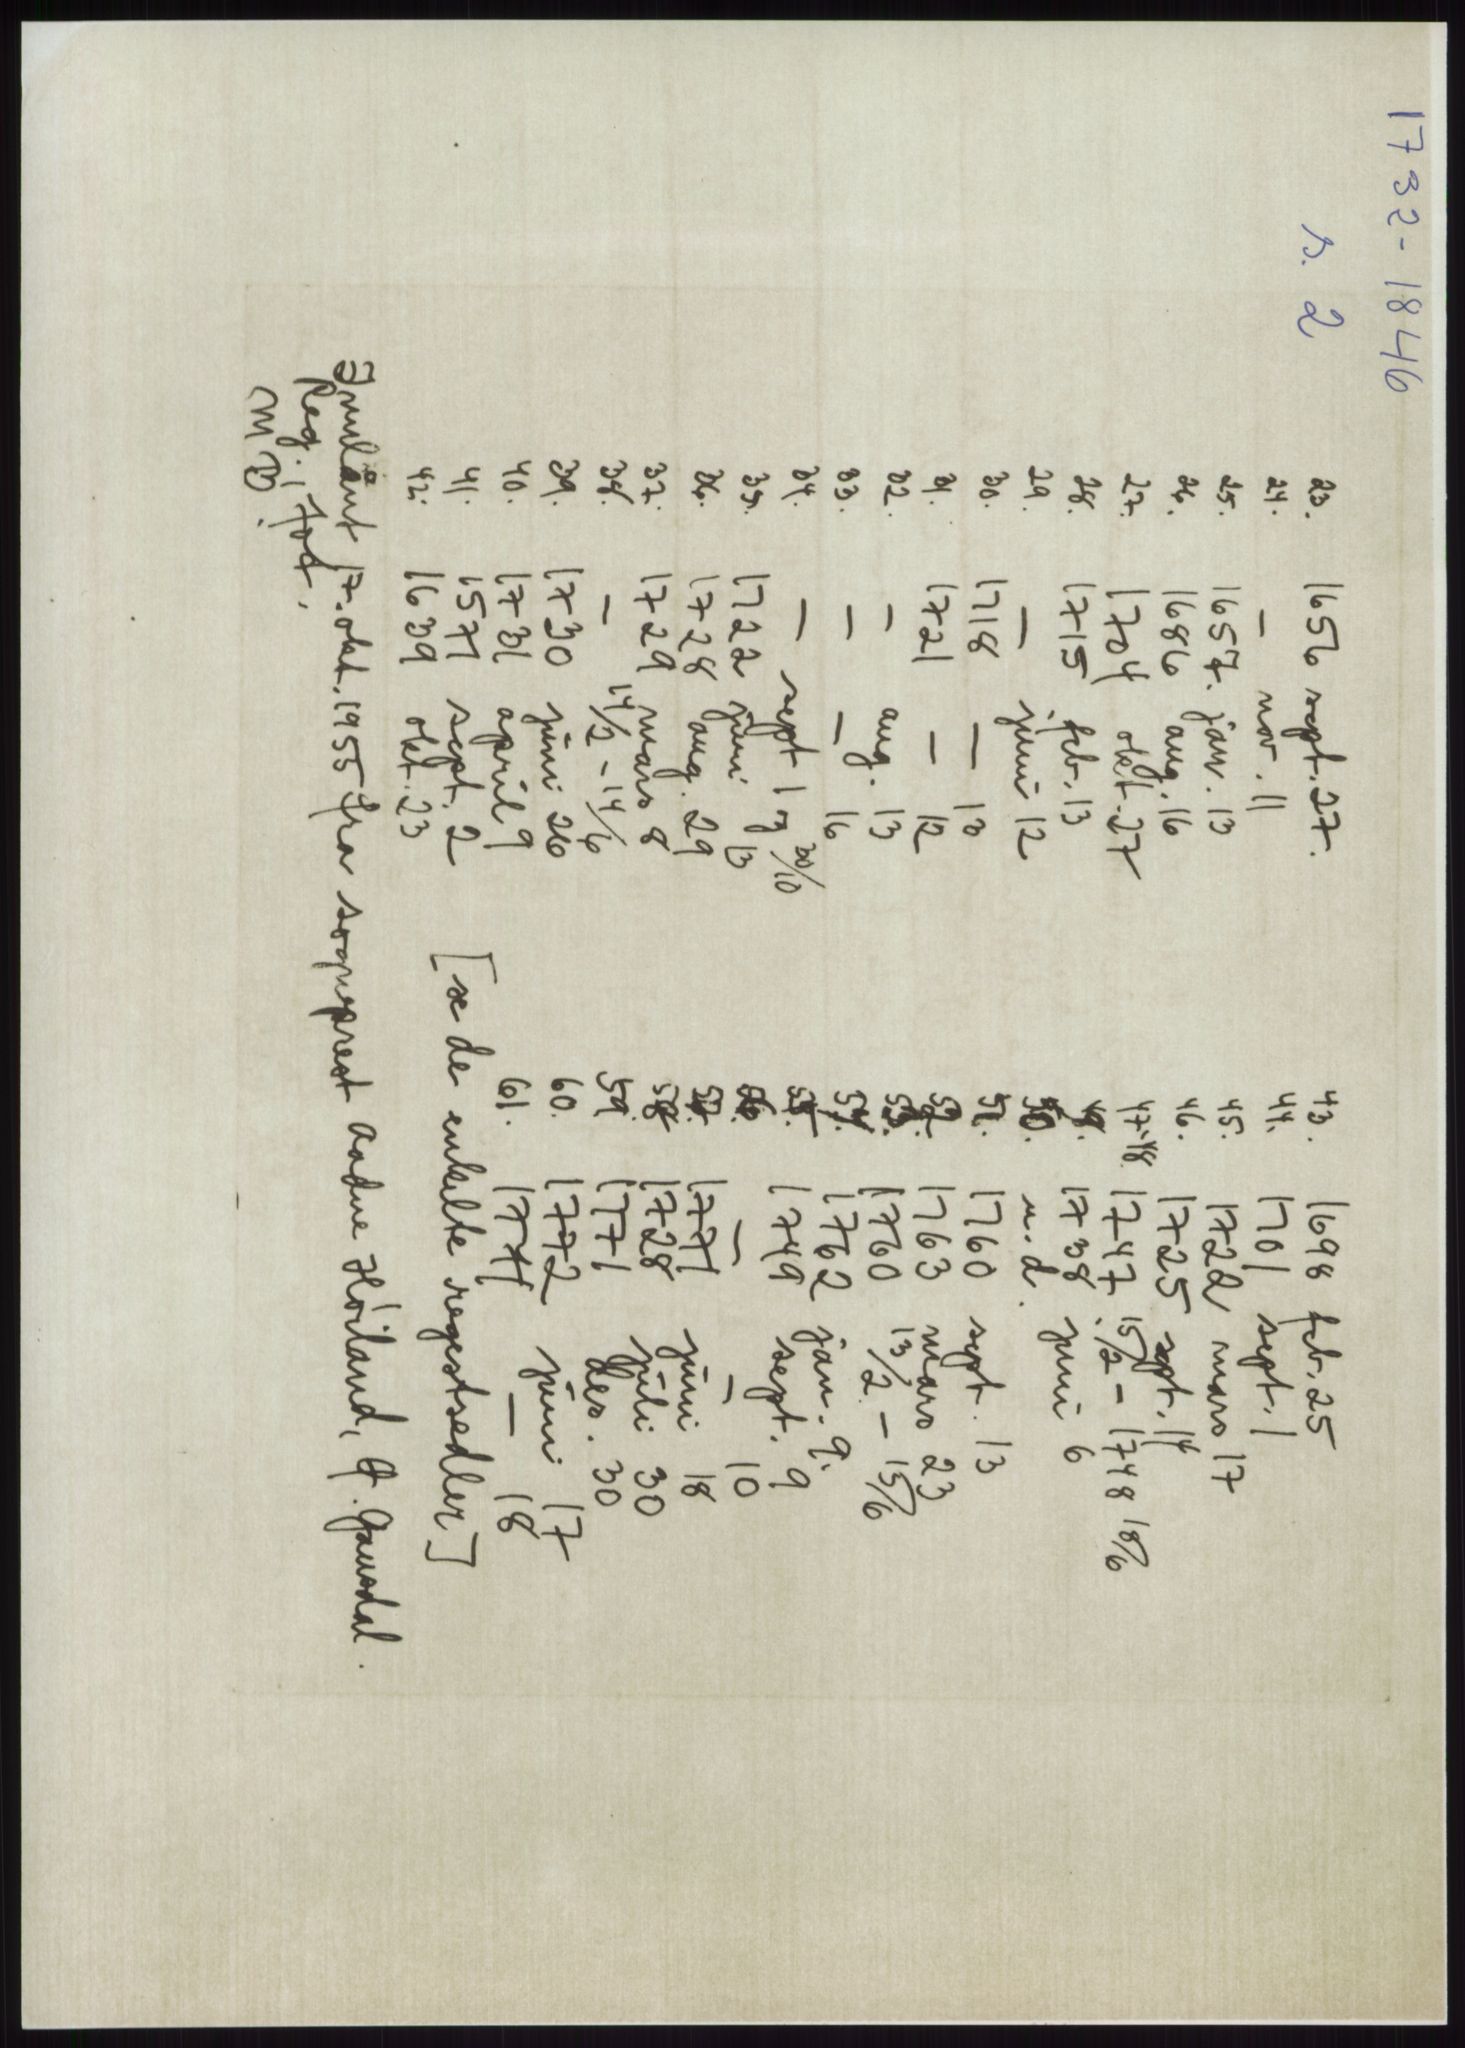 1732-1846
s. 2
23. 1656 sept. 27.
24. — nov. 11
25. 1657. jan. 13
26. 1686 aug. 16
27. 1704 okt. 27
28. 1715 feb. 13
29. — juni 12
30. 1718 — 13
31. 1721 — 12
32. — aug. 13
33. — — 16
34. — sept 1 og 30/10
35. 1722 juni 13
36. 1728 aug. 29
37. 1729 mars 8
38. — 14/2 - 14/6
39. 1730 juni 26
40. 1731 april 9
41. 1571 sept. 2
42. 1639 okt. 23
43. 1698 feb. 25
44. 1701 sept. 1
45. 1722 mars 17
46. 1725 sept. 14
47-48. 1747. 15/2 - 1748 18/6
49. 1738. juni 6
50. u. d.
51. 1760 sept. 13
52. 1763 mars 23
53. 1760 13/2 - 15/6
54. 1762 jan. 9.
55. 1749 sept. 9
56. — — 10
57. 1771 juni 18
58. 1728 juli 30
59. 1771 des. 30
60. 1772 juni 17
61. 1771 — 18
[se de enkelte regestsedler]
Innlånt 17. okt. 1955 fra sogneprest Aadne Höiland, Ø. Gausdal.
Reg., fot.